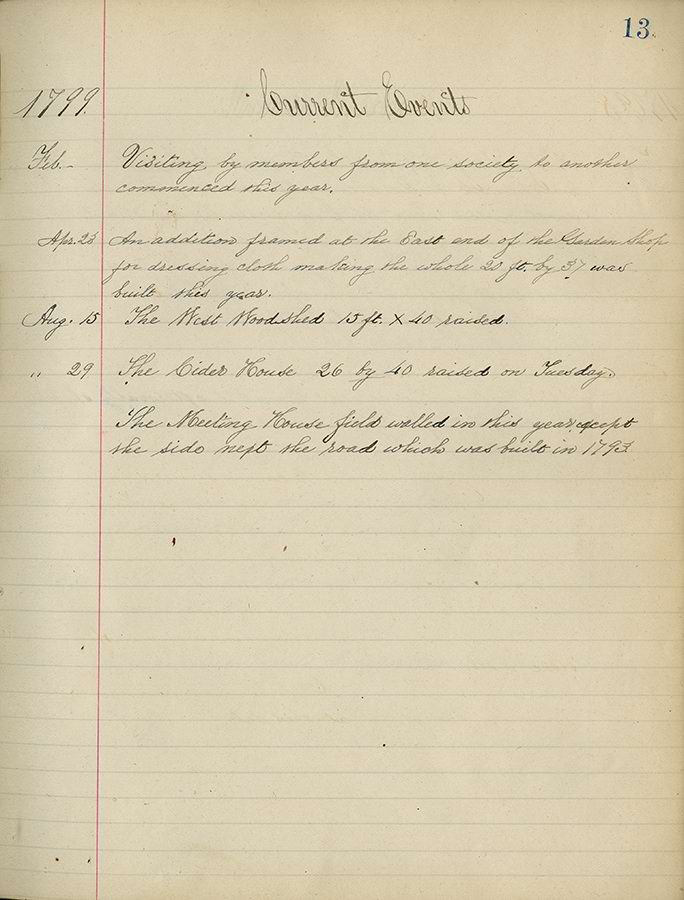 13
1799. Current Events
Feb.- Visiting by members from one society to another
commenced this year.
Apr. 23 An addition framed at the East end of the Garden Shop
for dressing cloth making the whole 20 ft. by 37 was
built this year.
Aug. 15 The West Woodshed 15 ft. X 40 raised.
„ 29 The Cider House 26 by 40 raised on Tuesday.
The Meeting House field walled in this year, except
the side next the road which was built in 1793